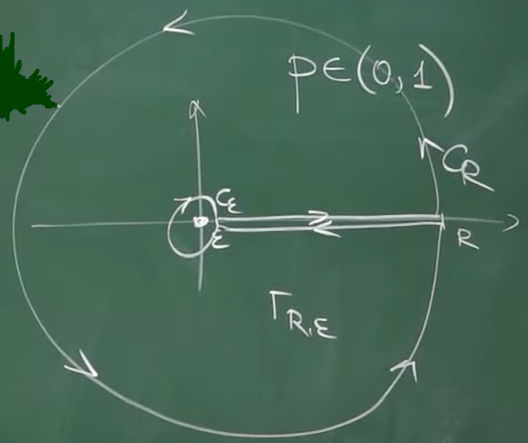 p∈(0,1)
C_R
C_ε
ε
R
Γ_{R,ε}